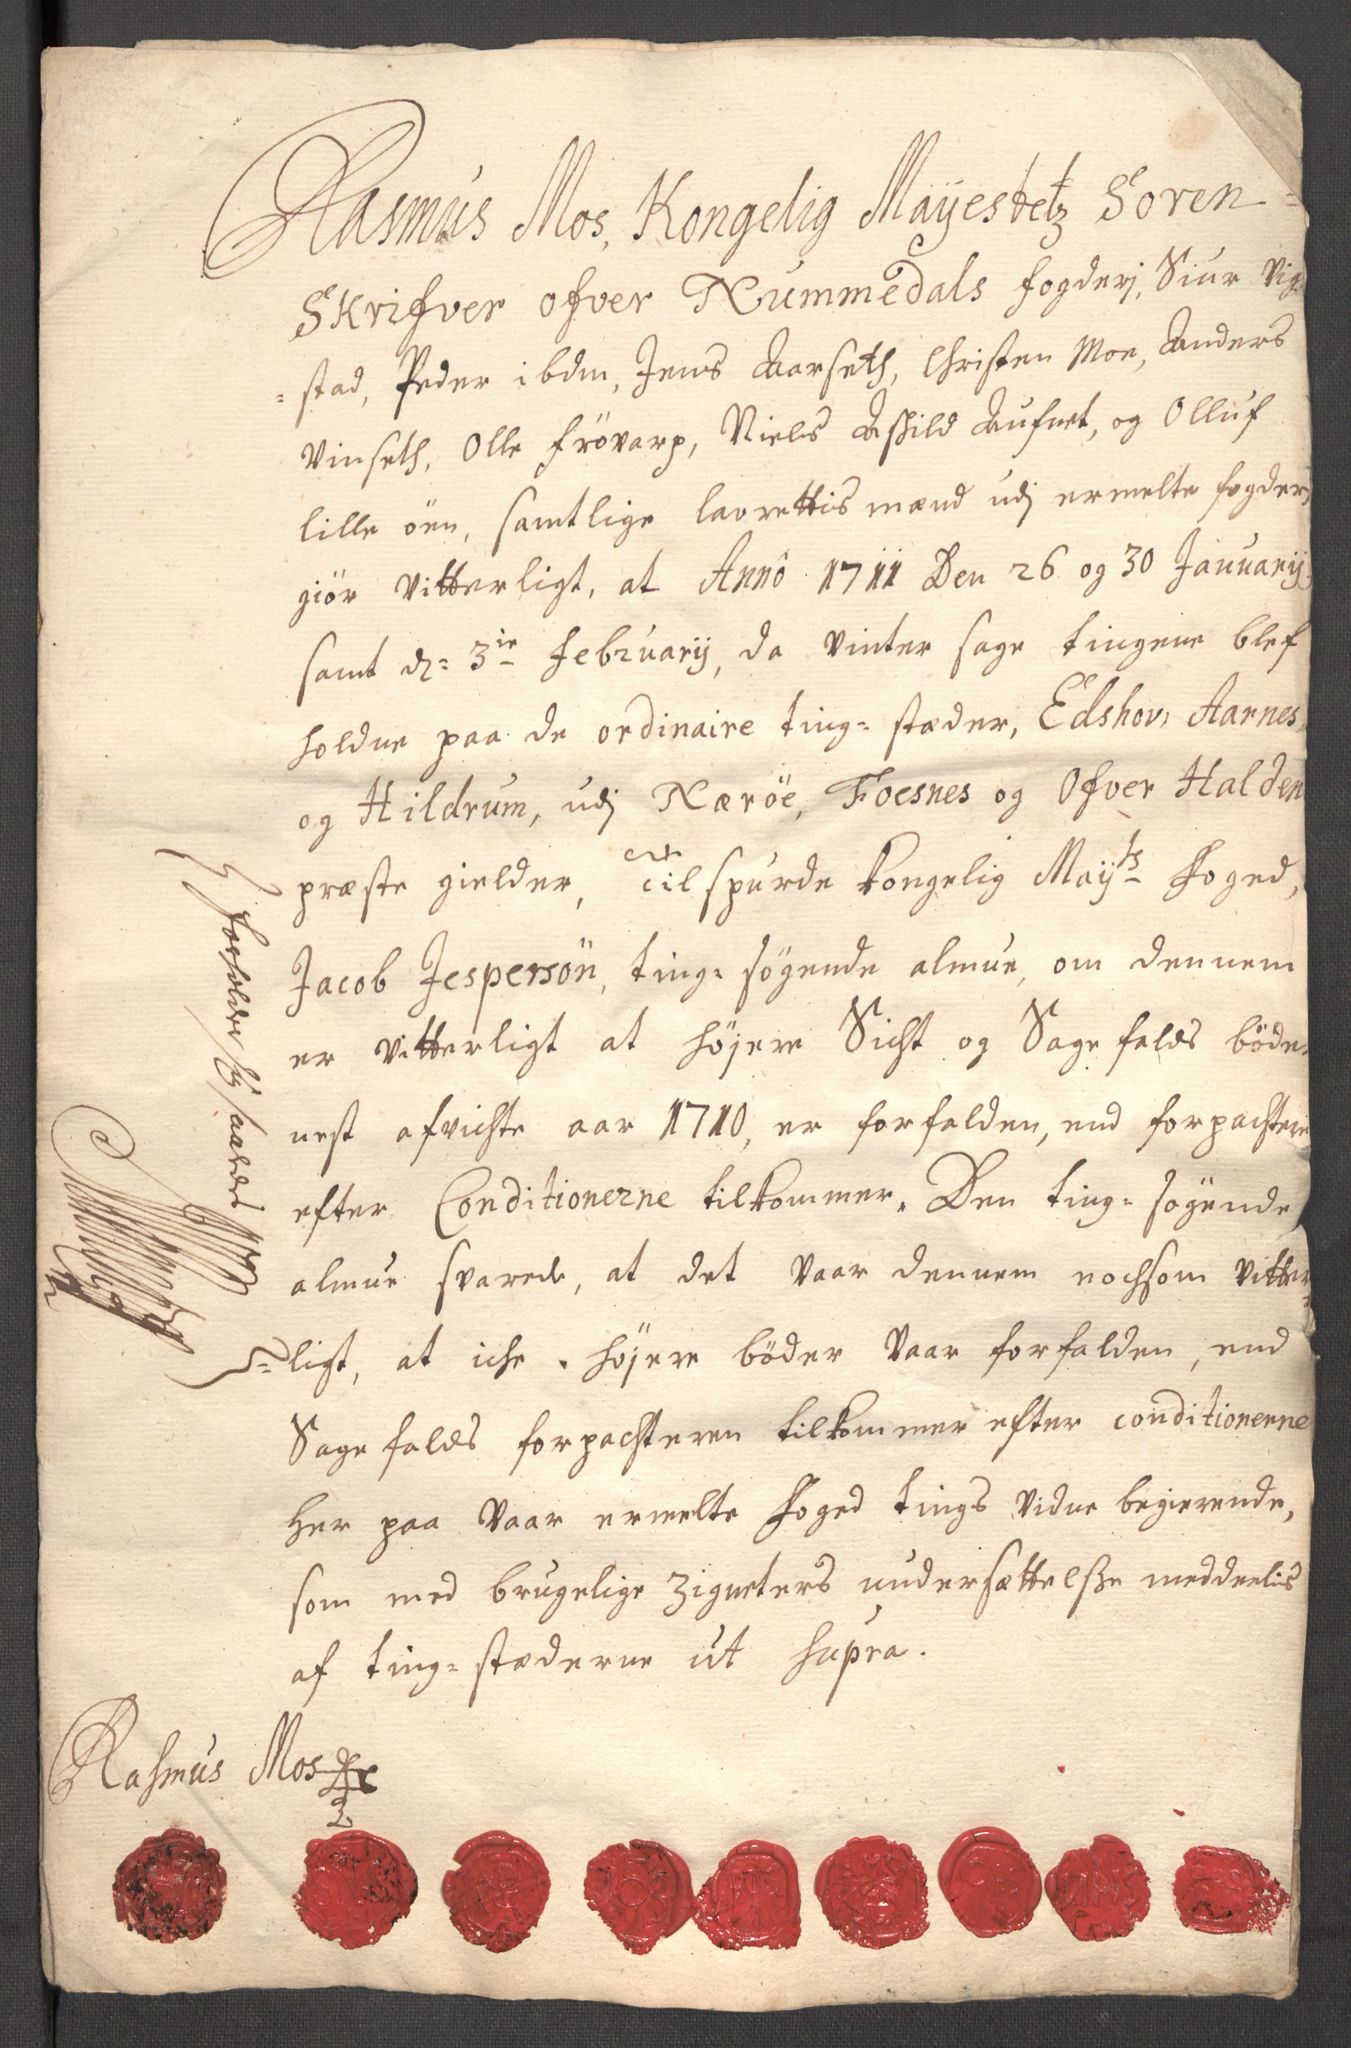 Rasmus Mos, Kongelig Mayestetz Soren-
Skrifver ofver Nummedals fogderj, Siur Vig
=stad, Peder ibdm, Jens Aarseth, Christen Moe, Anders
Vinseth, Olle Frövarp, Niels Aßild Aufnet, og Olluf
lille öen, samtlige laurettis mænd udj ermelte fogderj
giör vitterligt, at Annô 1711 Den 26 og 30 Januarij
samt d: 3ie February, da vinter sage tingene blef
holdne paa de ordinaire ting=stæder, Edshov, Aarnes,
og Hildrum, udj Næröe, Foesnes og Ofver Halden
præste gielder, tilspurde kongelig Mayts Foged,
Jacob Jespersön, ting=sögende almue, om dennem
er vitterligt at höjere Sicht og Sagefalds böde
nest afvichte aar 1710, er forfalden, end forpachteren
efter Conditionerne tilkommer. Den ting=sögende
almue svarede, at det vaar dennem nochsom vitter
=ligt, at iche höjere böder vaar forfalden, end
Sagefalds forpachteren tilkommer efter conditionerne
Her paa vaar ermelte Foged tings vidne begierende,
som med brugelige Zigneters undersættelße meddeelis
af ting=stæderne ut supra.
Rasmus Mos